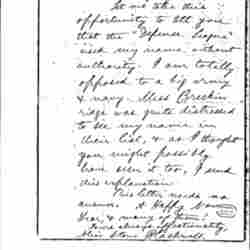 let me take this
opportunity to tell you
that the "Defense League"
used my name without
authority. I am totally
opposed to a big army
& navy. Miss Breckin
ridge was quite distressed
to see my name on
their list, & as I thought
you might possibly
have seen it too, I send
this explanation.
This letter needs no
answer. A Happy New
Year, & many of them!
Yours always affectionately,
Alice Stone Blackwell